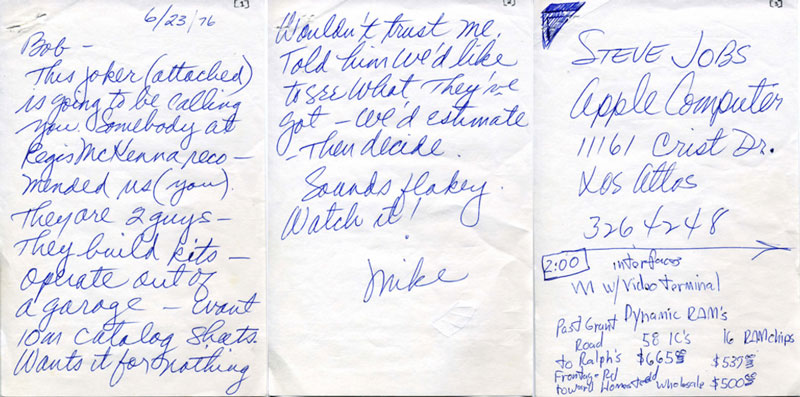 [1]
6/23/76
Bob —
This joker (attached)
is going to be calling
you. Somebody at
Regis McKenna reco—
mended us (you).
They are 2 guys —
They build kits —
operate out of
a garage — want
10m catalog sheets.
Wants it for nothing
[2]
Wouldn't trust me.
Told him we'd like
to see what they've
got — we'd estimate
— Then decide.
Sounds flakey.
Watch it!
Mike
[3]
STEVE JOBS
Apple Computer
11161 Crist Dr.
Los Altos
326 4248
2:00 interfaces
w/Video terminal
Dynamic RAM's
58 IC's 16 RAM chips
$665 $537
wholesale $500
Past Grant
Road
to Ralph's
Frontage Rd
toward Homestead